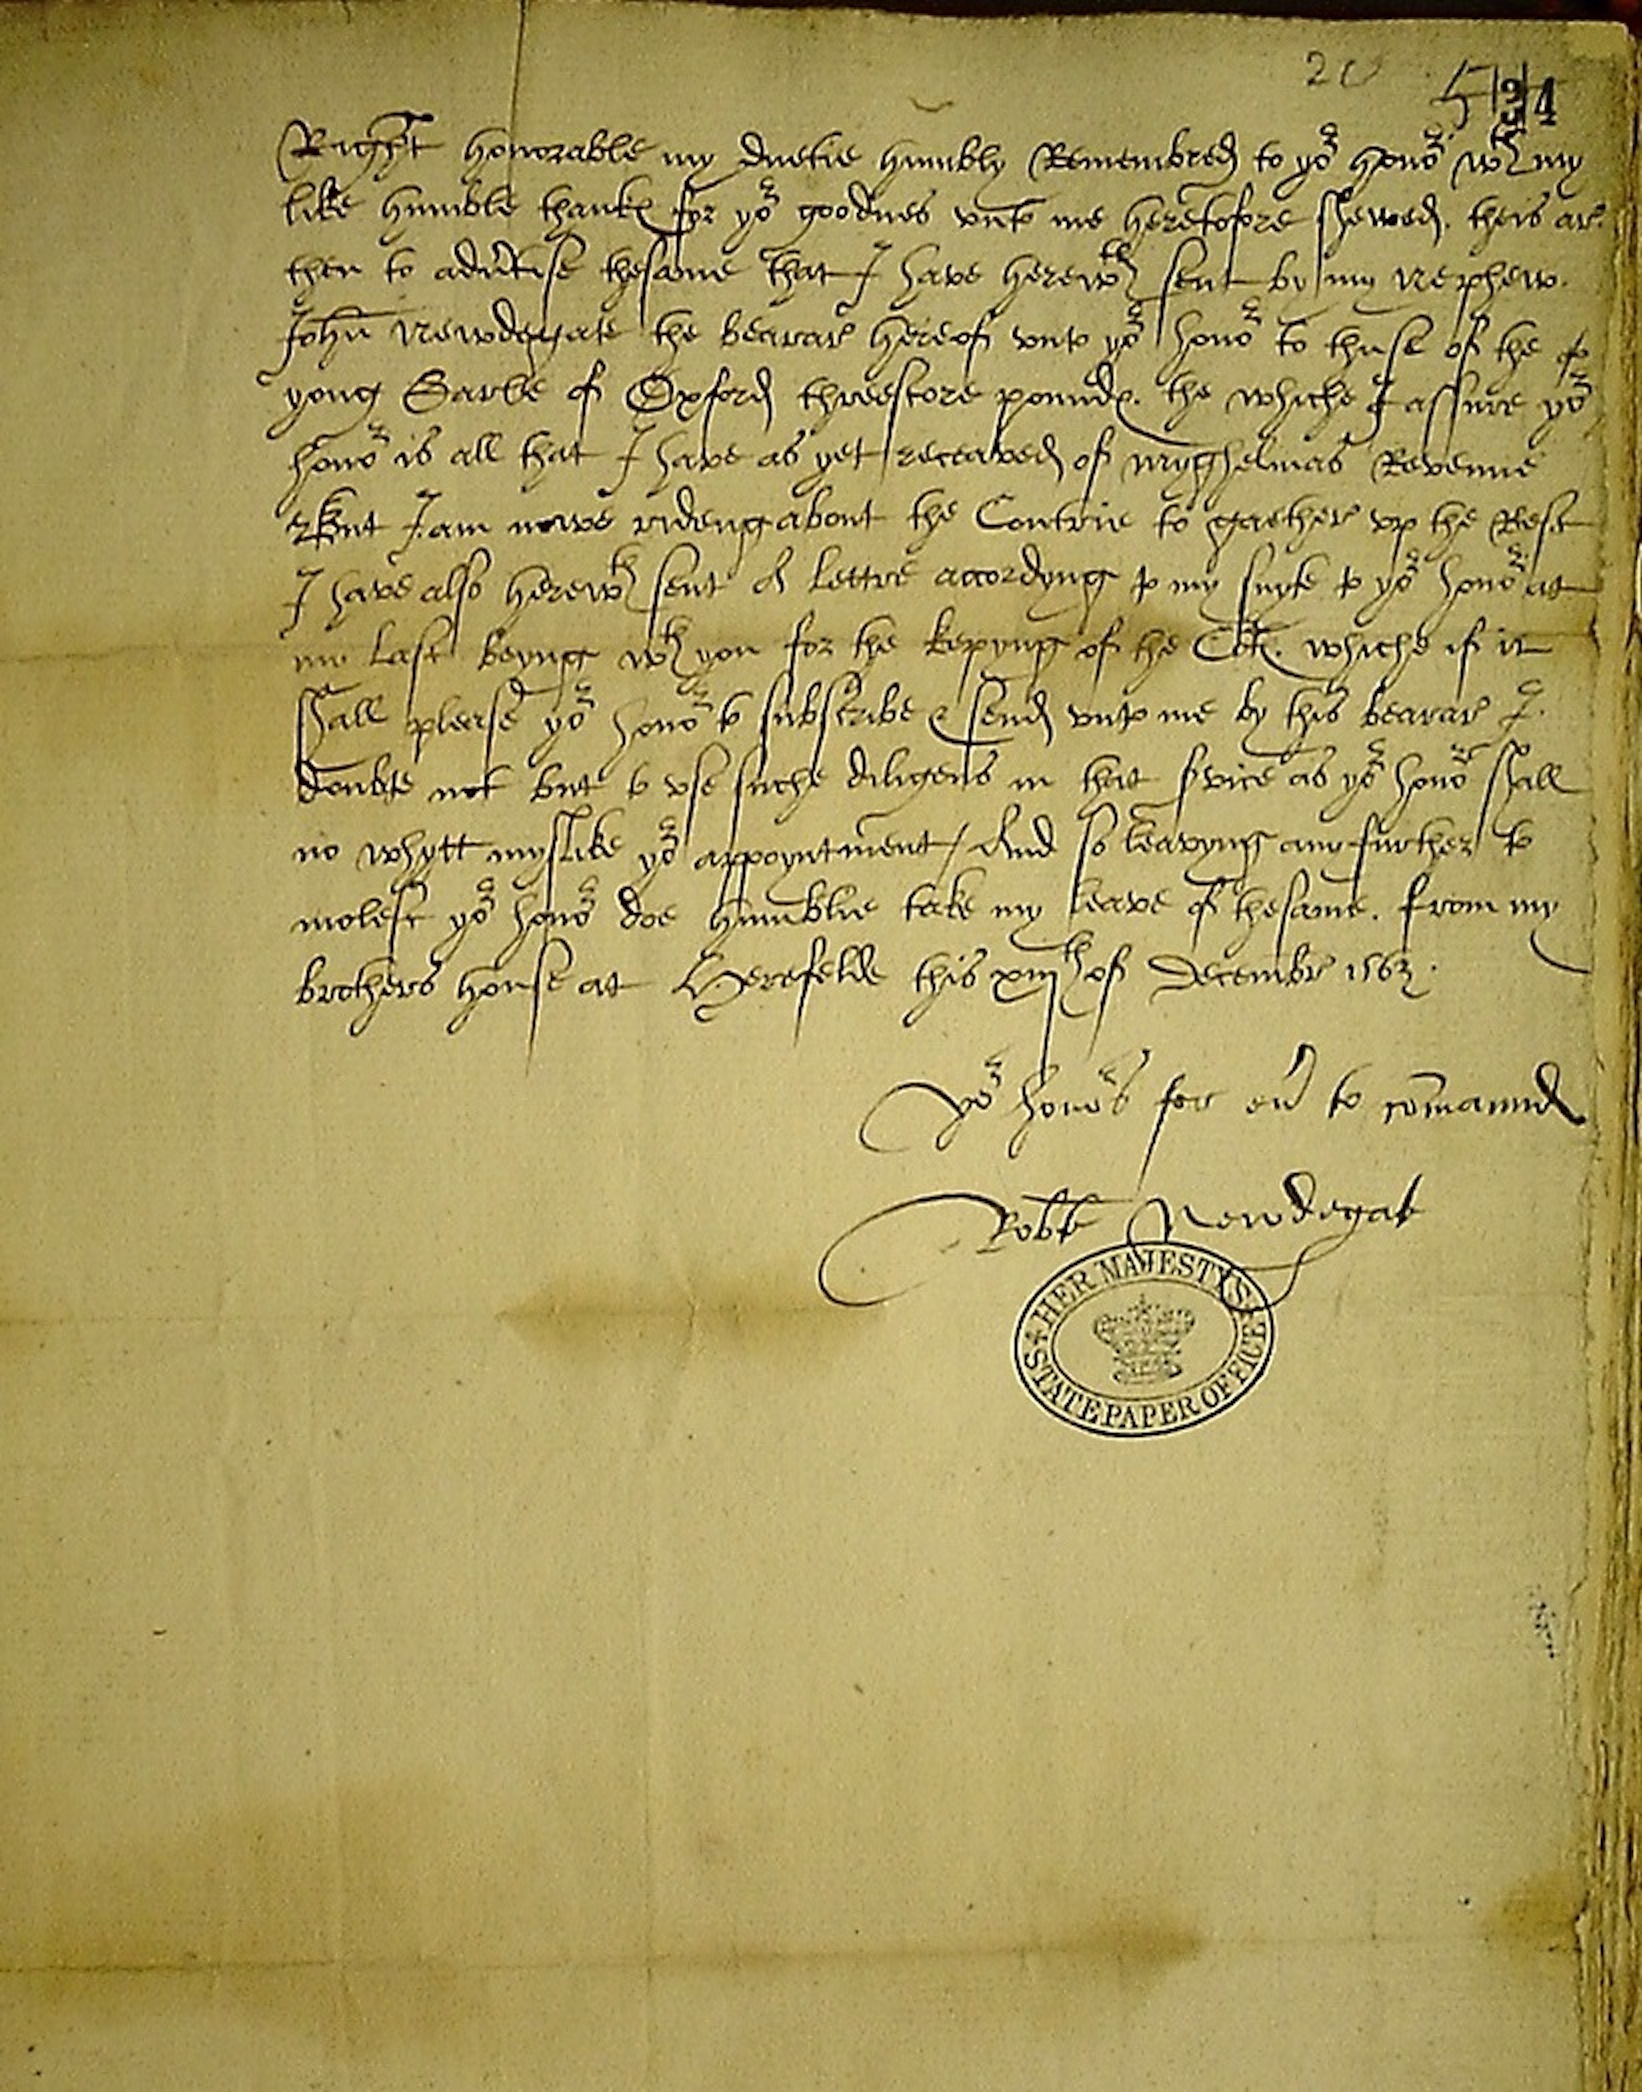 20 534
Right honorable my duetie humbly Remembred to yor honor wt my
like humble thankes for yor goodnes vnto me heretofore shewed. theis ar
then to advertise thesame that I have herewth sent by my Nephew.
John Newdygate the bearar hereof vnto yor honor to thuse of the
yong Earle of Oxford threescore poundes. the whiche I assure yor
honor is all that I have as yet receaved of myghelmas Revenue
But I am nowe rideng about the Contrie to gaether vp the Rest
I have also herewth sent a lettre accordyng to my sute to yor honor at
my last beyng wth you for the kepyng of the whiche if it
shall please yor honor to subscribe & send vnto me by this bearar I.
doubte not but to vse suche diligens in that service as yor honor shall
no whytt myslike yor appoyntment / And so leavyng any further to
molest yor honor doe humblie take my leave of thesame. from my
brothers house at Herefelde this xiijth of December 1563.
Yor honors for ever to command
Robt Newdegat
HER MAJESTY'S STATE PAPER OFFICE